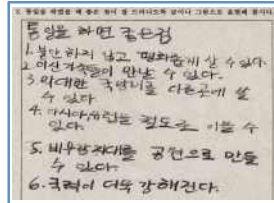 통일을 하면 좋은점
1. 분단 하지 않고 평화롭게 살 수 있다.
2. 이산가족들이 만날 수 있다.
3. 막대한 국방비를 다른곳에 쓸
수 있다
4. 아시아, 유럽을 철도로 이을 수
있다.
5. 비무장지대를 공원으로 만들
수 있다.
6. 국력이 더욱 강해진다.